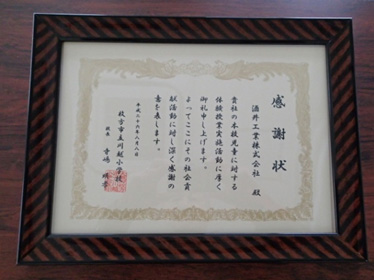 感謝状
酒井工業株式会社 殿
貴社の本校児童に対する
体験授業実施活動に厚く
御礼申し上げます。
よってここにその社会貢
献活動に対し深く感謝の
意を表します。
平成二十六年八月八日
枚方市立川越小学校
校長 寺嶋